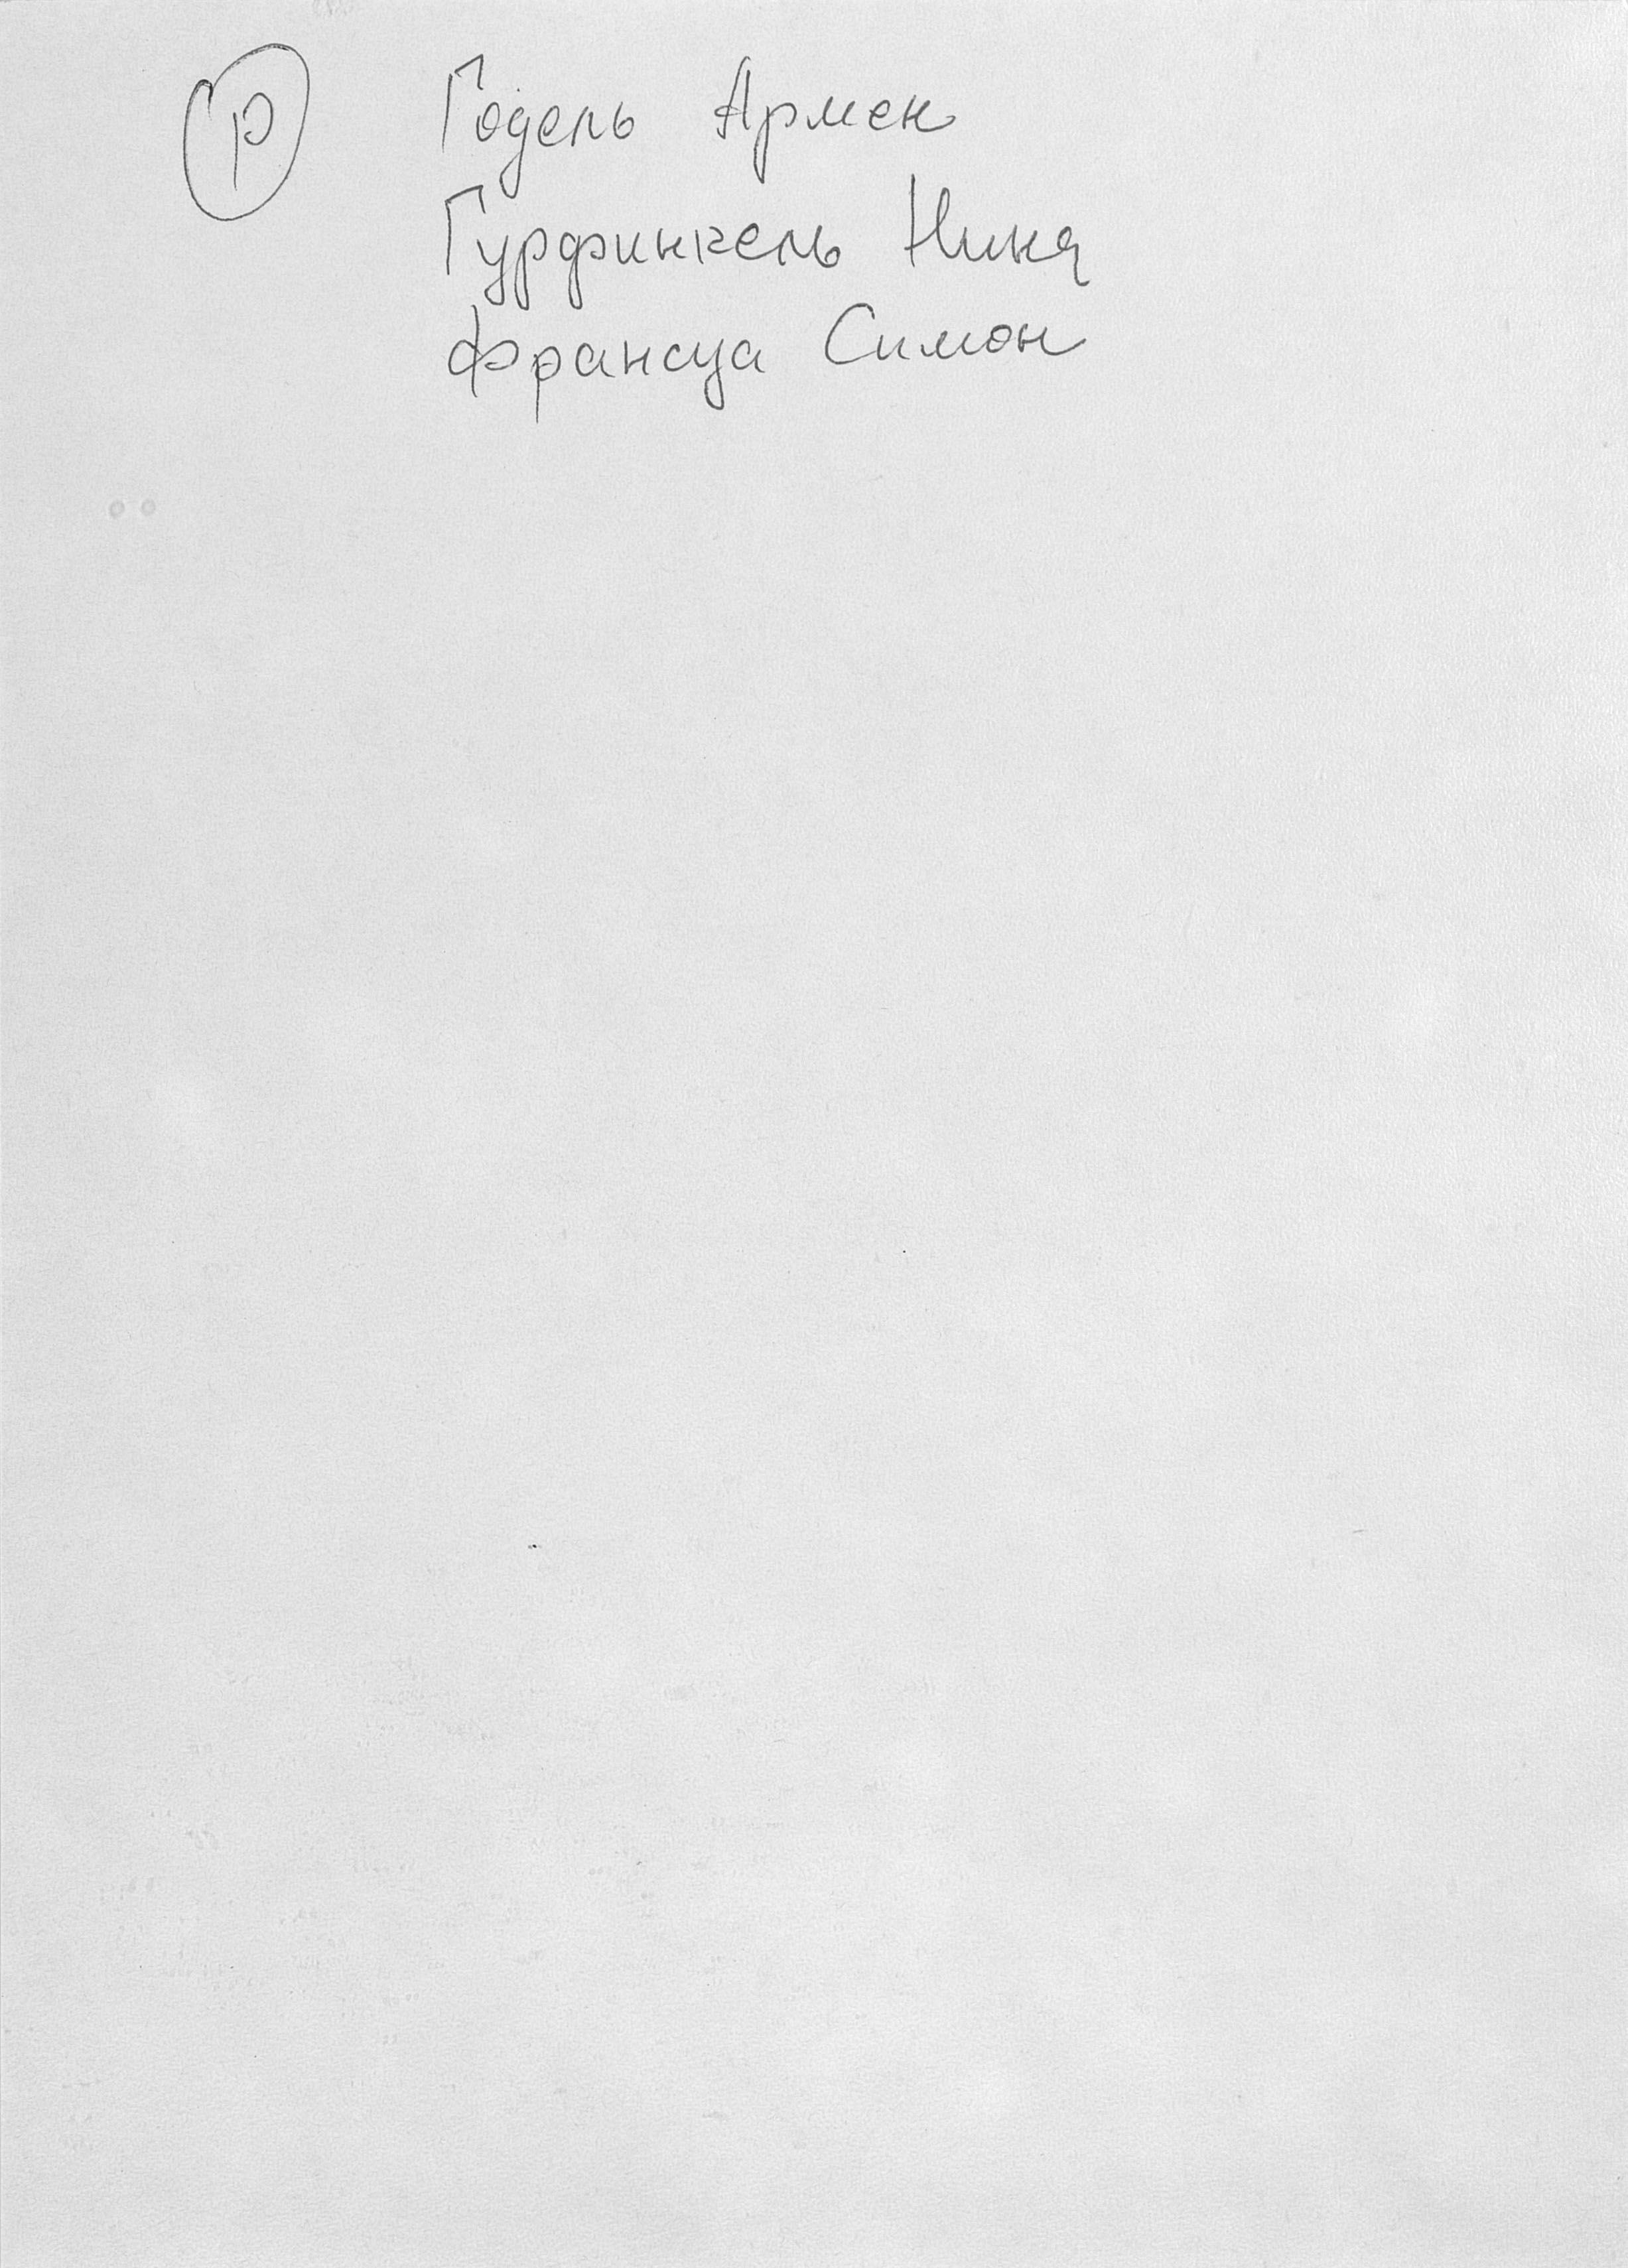 Р Годель Армен
Гурфинкель Нина
Франсуа Симон